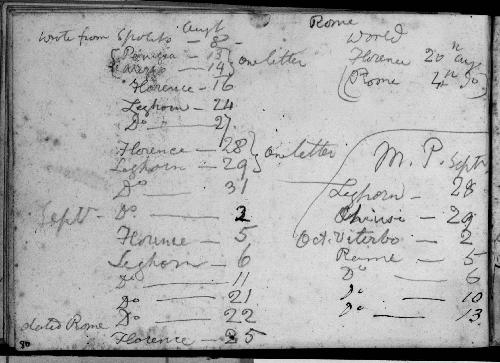 Augt
wrote from Spoleto - 8
Perugia - 13 } one letter
Arezzo - 14
Florence - 16
Leghorn - 24
Do - 27
Florence - 28 } one letter
Leghorn - 29
Do - 31
Septr - Do - 2
Florence - 5
Leghorn - 6
Do - 11
Do - 21
dated Rome Do - 22
Florence - 25
80
Rome
World
Florence 20th Aug
(Rome 4th Do)
M. P. Septr
Leghorn - 28
Chiusi - 29
Oct. Viterbo - 2
Rome - 5
Do - 6
Do - 10
Do - 13